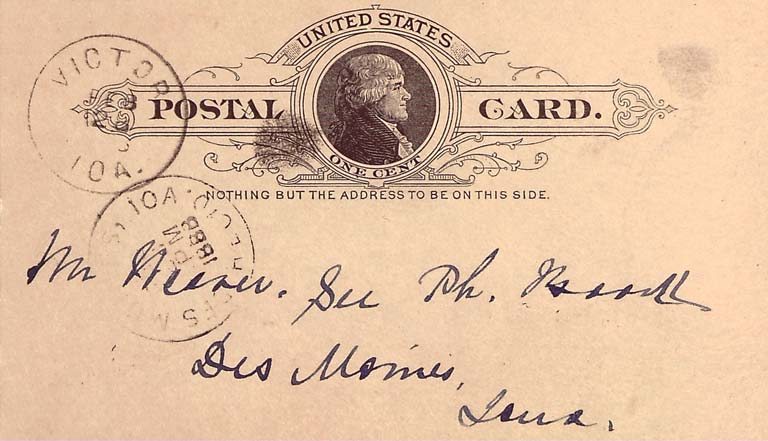 UNITED STATES
POSTAL CARD.
ONE CENT
NOTHING BUT THE ADDRESS TO BE ON THIS SIDE.
VICTOR
IOA.
IOA.
1888
PM
Mr Weaver. Sec Ph.
Des Moines,
Iowa.